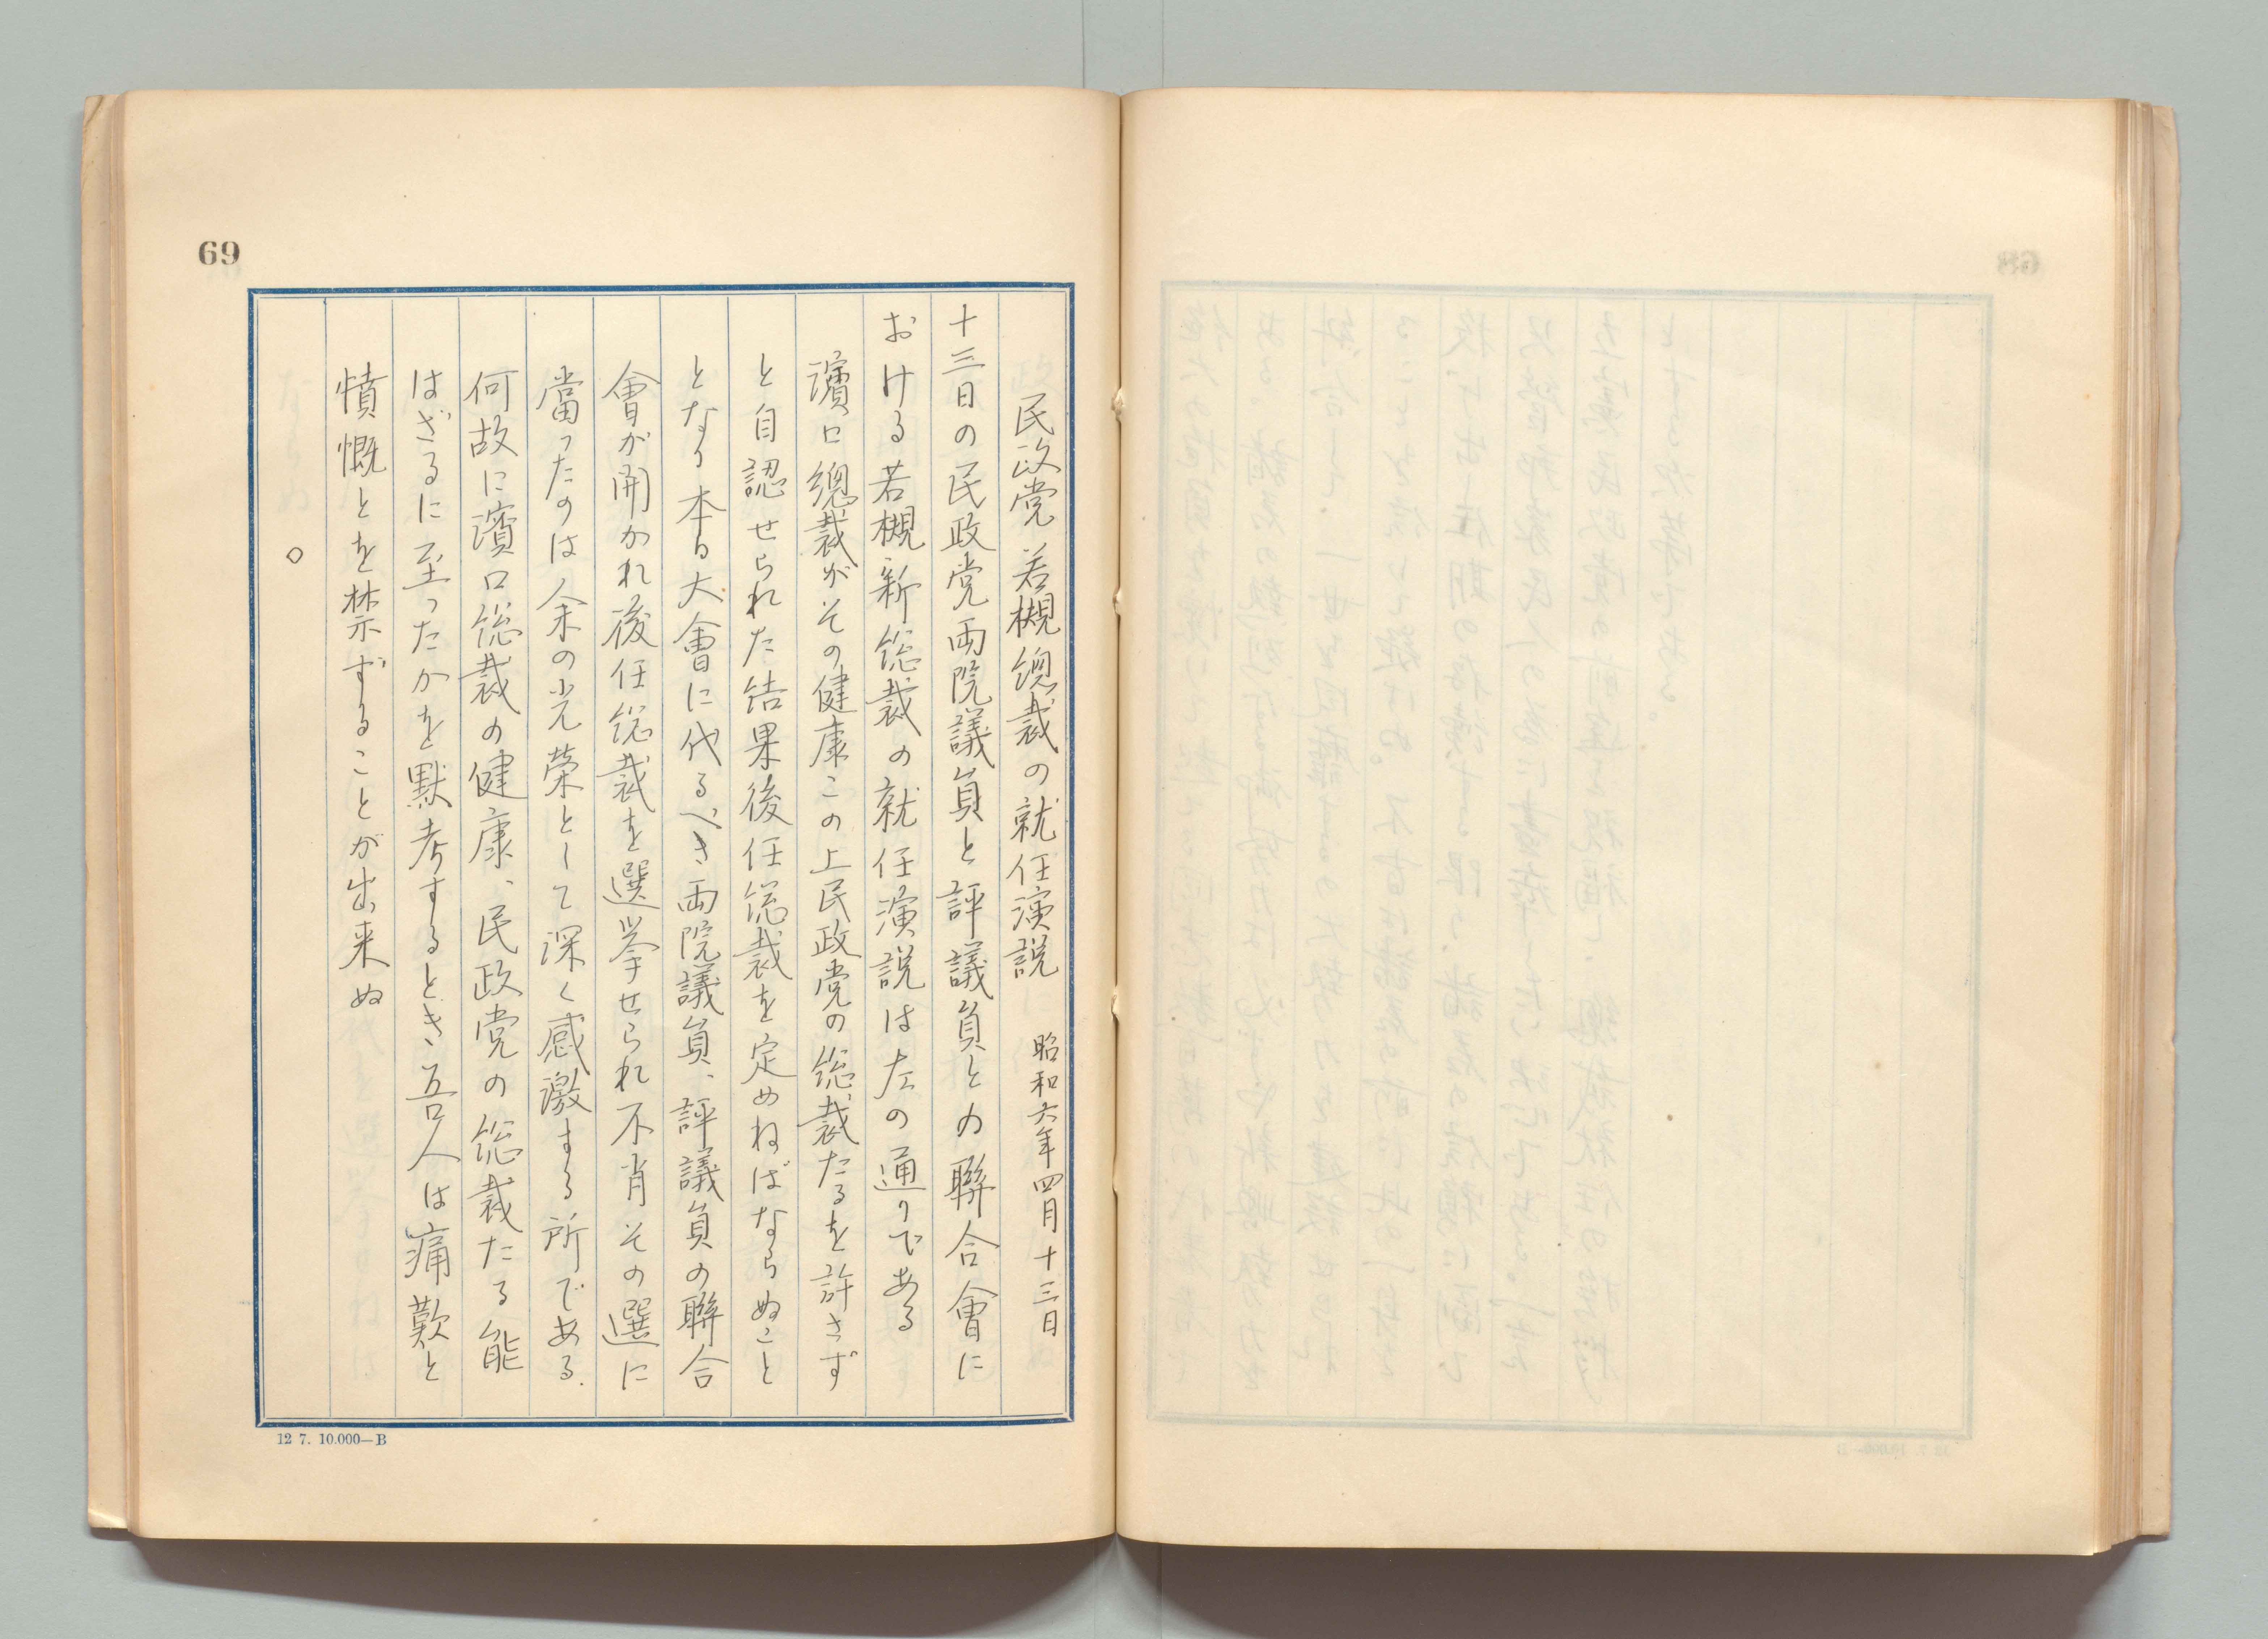 69
民政党 若槻總裁の就任演説 昭和六年四月十三日
十三日の民政党両院議員と評議員との聯合會に
おける若槻新総裁の就任演説は左の通りである
濱口總裁がその健康この上民政党の総裁たるを許さず
と自認せられた結果後任総裁を定めねばならぬこと
となり本る大會に代るべき両院議員、評議員の聯合
會が開かれ後任総裁を選挙せられ不肖その選に
當ったのは余の光栄として深く感激する所である.
何故に濱口総裁の健康、民政党の総裁たる能
はざるに至ったかを默考するとき吾人は痛歎と
憤慨とを禁ずることが出来ぬ
○
12 7. 10.000—B